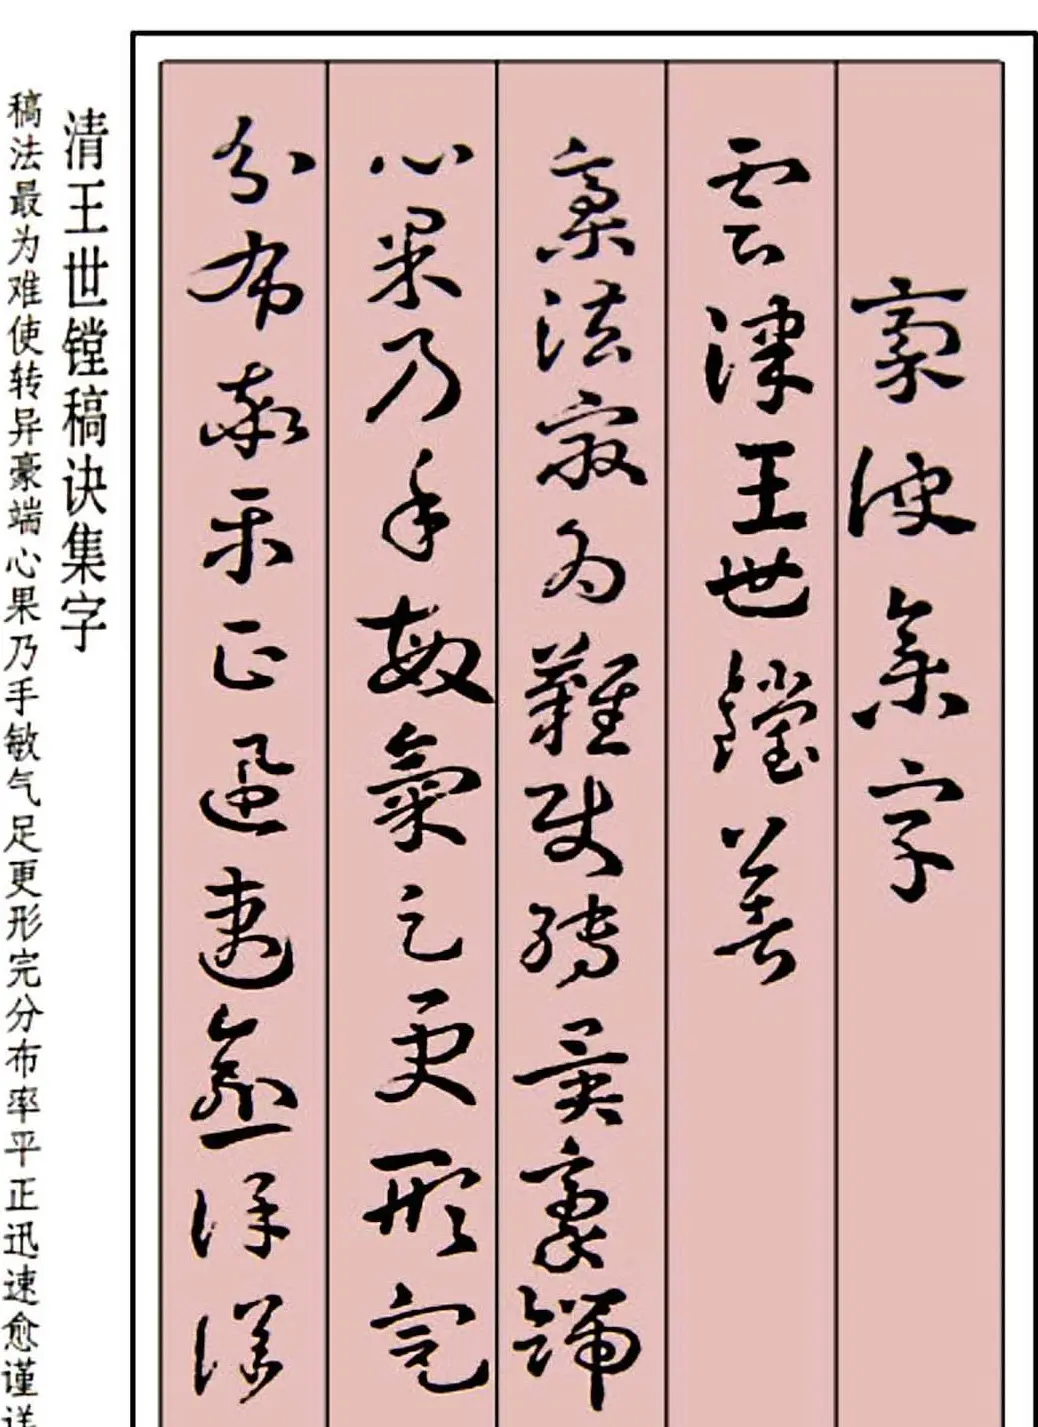 稾訣集字
雲津王世鏜著
稾法最為難使轉異豪端
心果乃手敏氣足更形完
分布率平正迅速愈謹詳
清王世镗稿诀集字
稿法最为难使转异豪端心果乃手敏气足更形完分布率平正迅速愈谨详